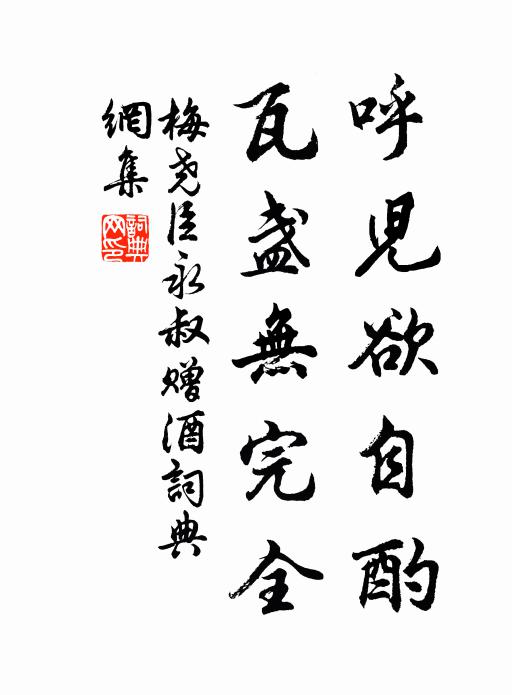 呼児欲自酌
瓦盞無完全
梅堯臣永叔贈酒詞典
網集
詞典网印